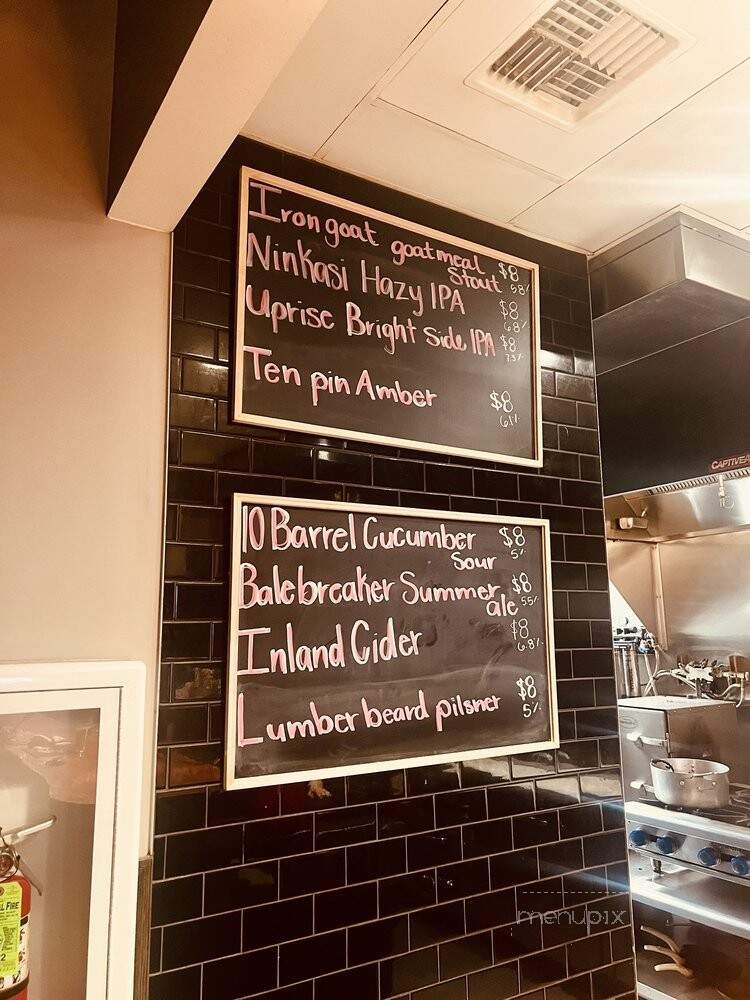 Iron goat goatmeal $8
Stout 5.8%
Ninkasi Hazy IPA $8
6.8%
Uprise Bright Side IPA $8
7.3%
Ten pin Amber $8
6.1%
10 Barrel Cucumber $8
Sour 5%
Balebreaker Summer $8
ale 5.5%
Inland Cider $8
6.8%
Lumberbeard pilsner $8
5%
CAPTIVEA
menupix